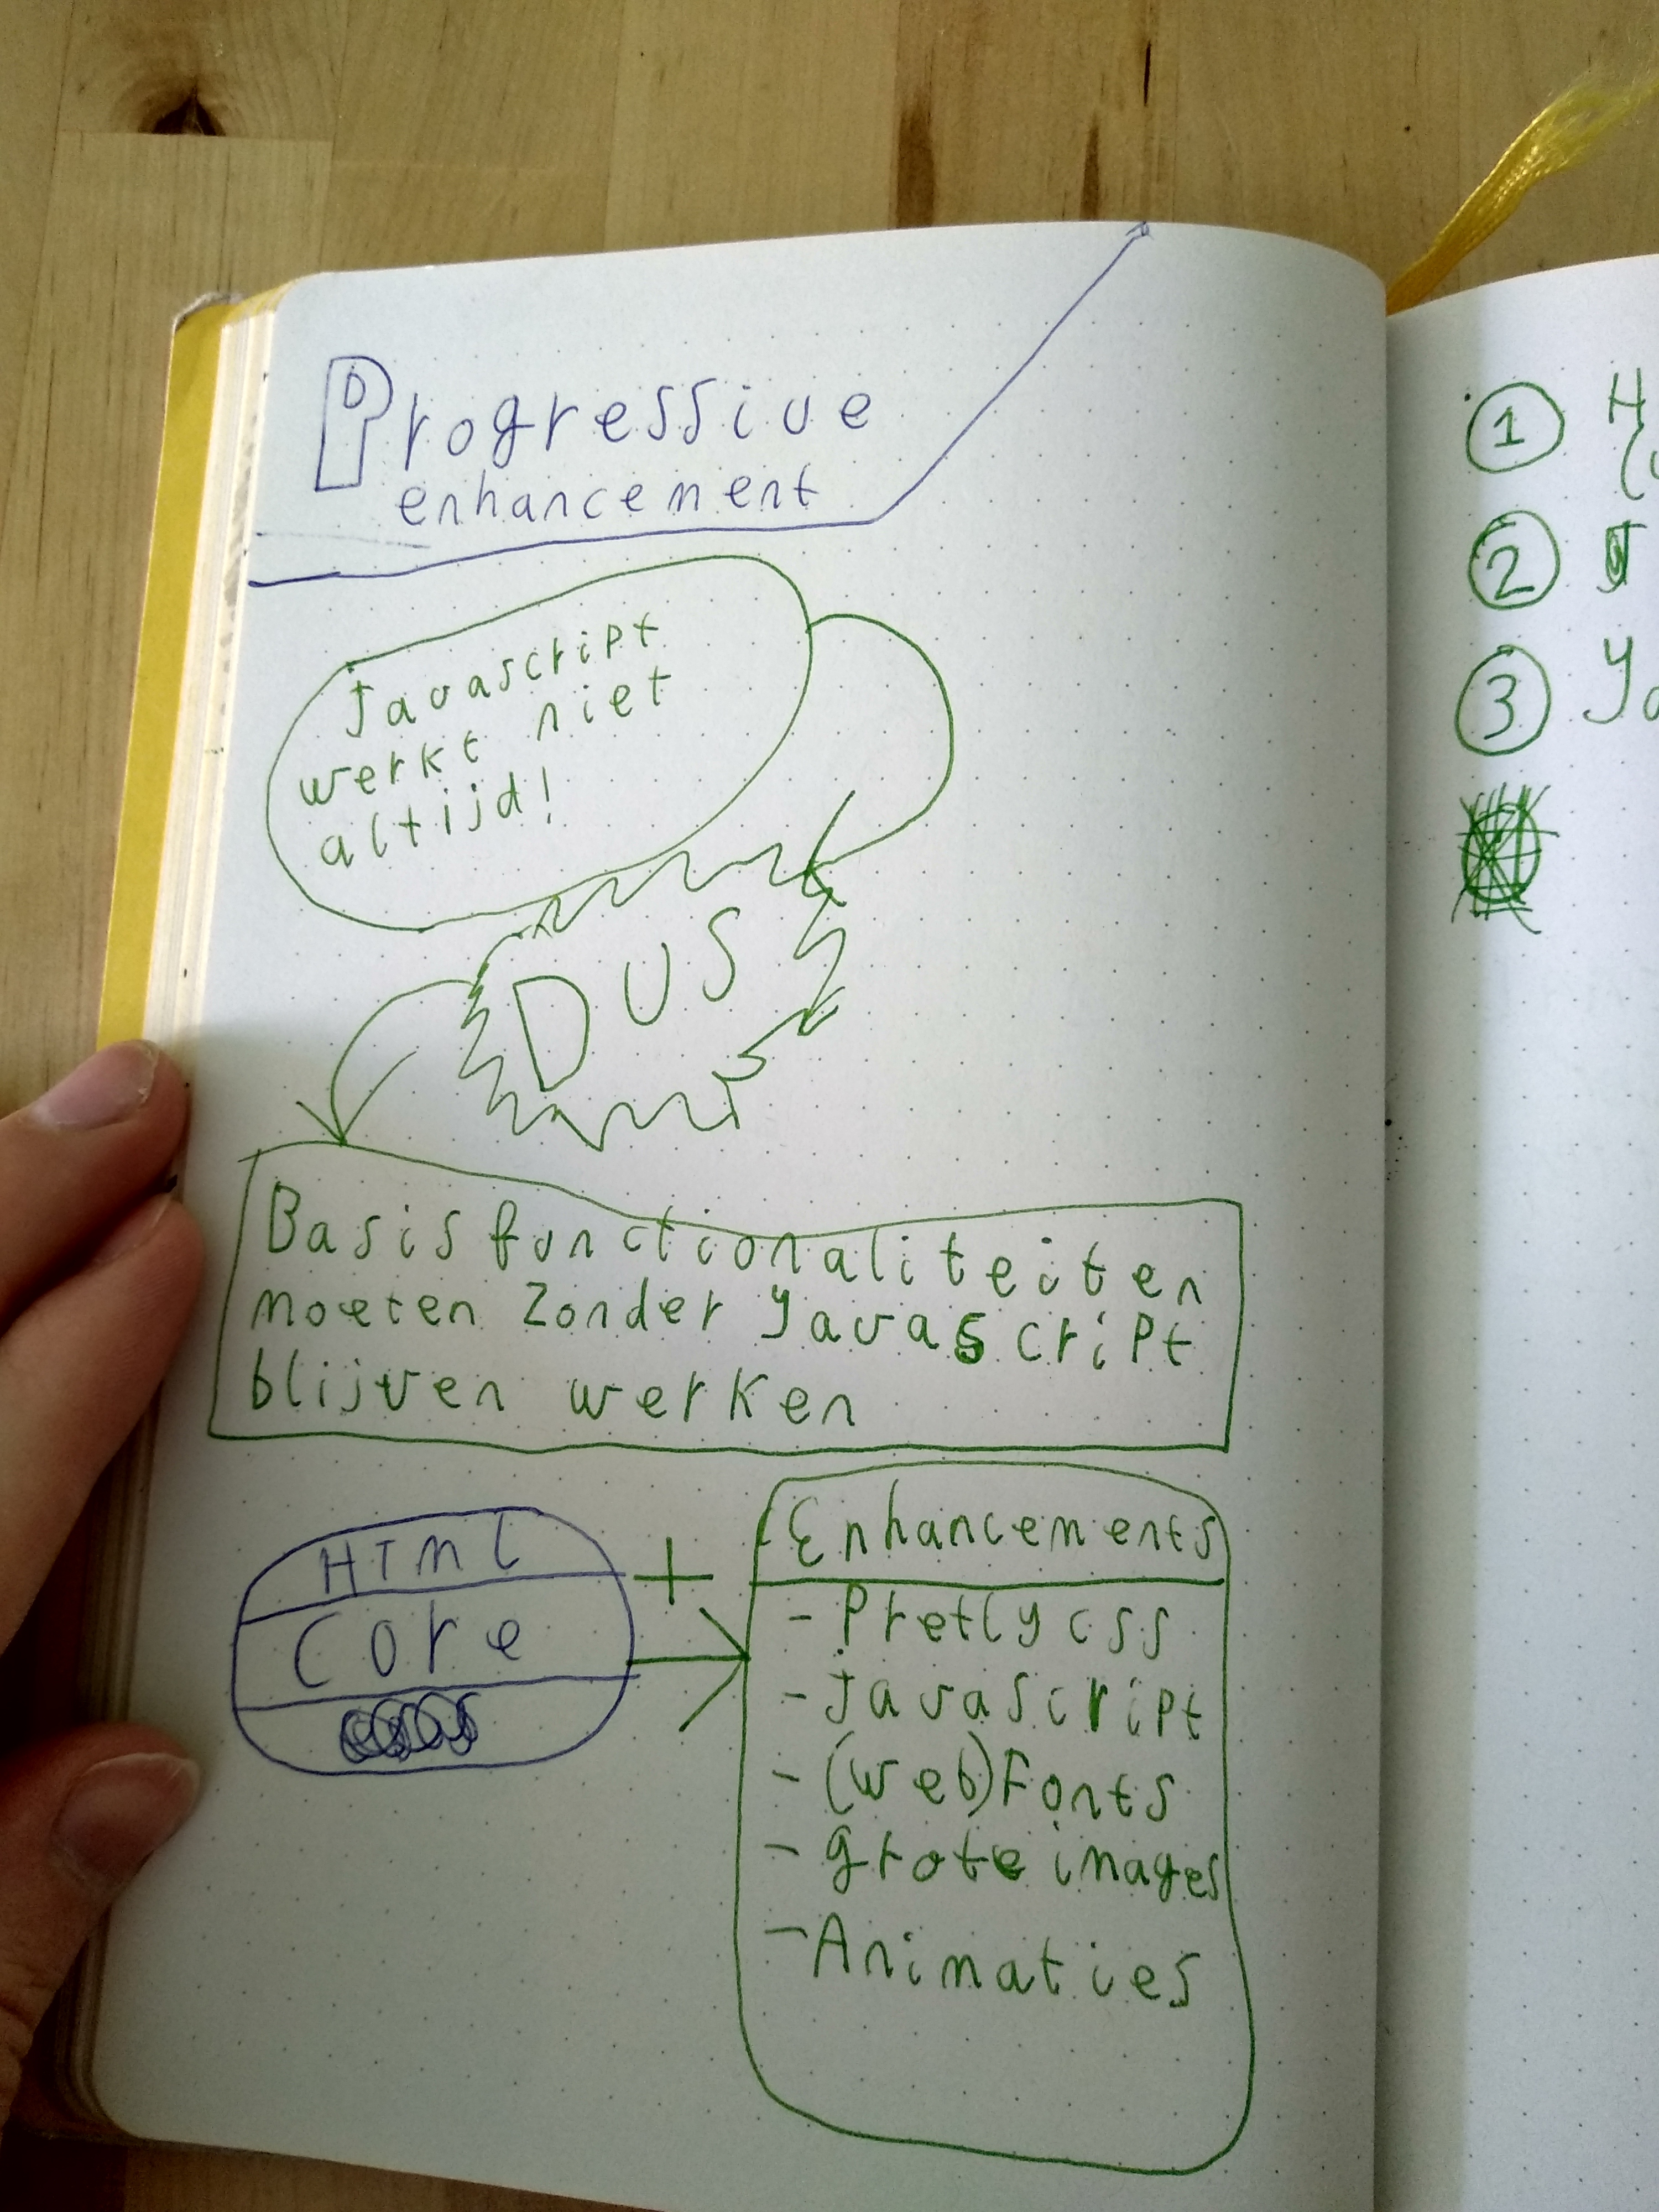 Progressive
enhancement
Javascript
werkt niet
altijd!
DUS
Basis functionaliteiten
moeten zonder Javascript
blijven werken
HTML
Core
+
Enhancements
- Pretty css
- Javascript
- (web)Fonts
- grote images
- Animaties
1 H
2
3